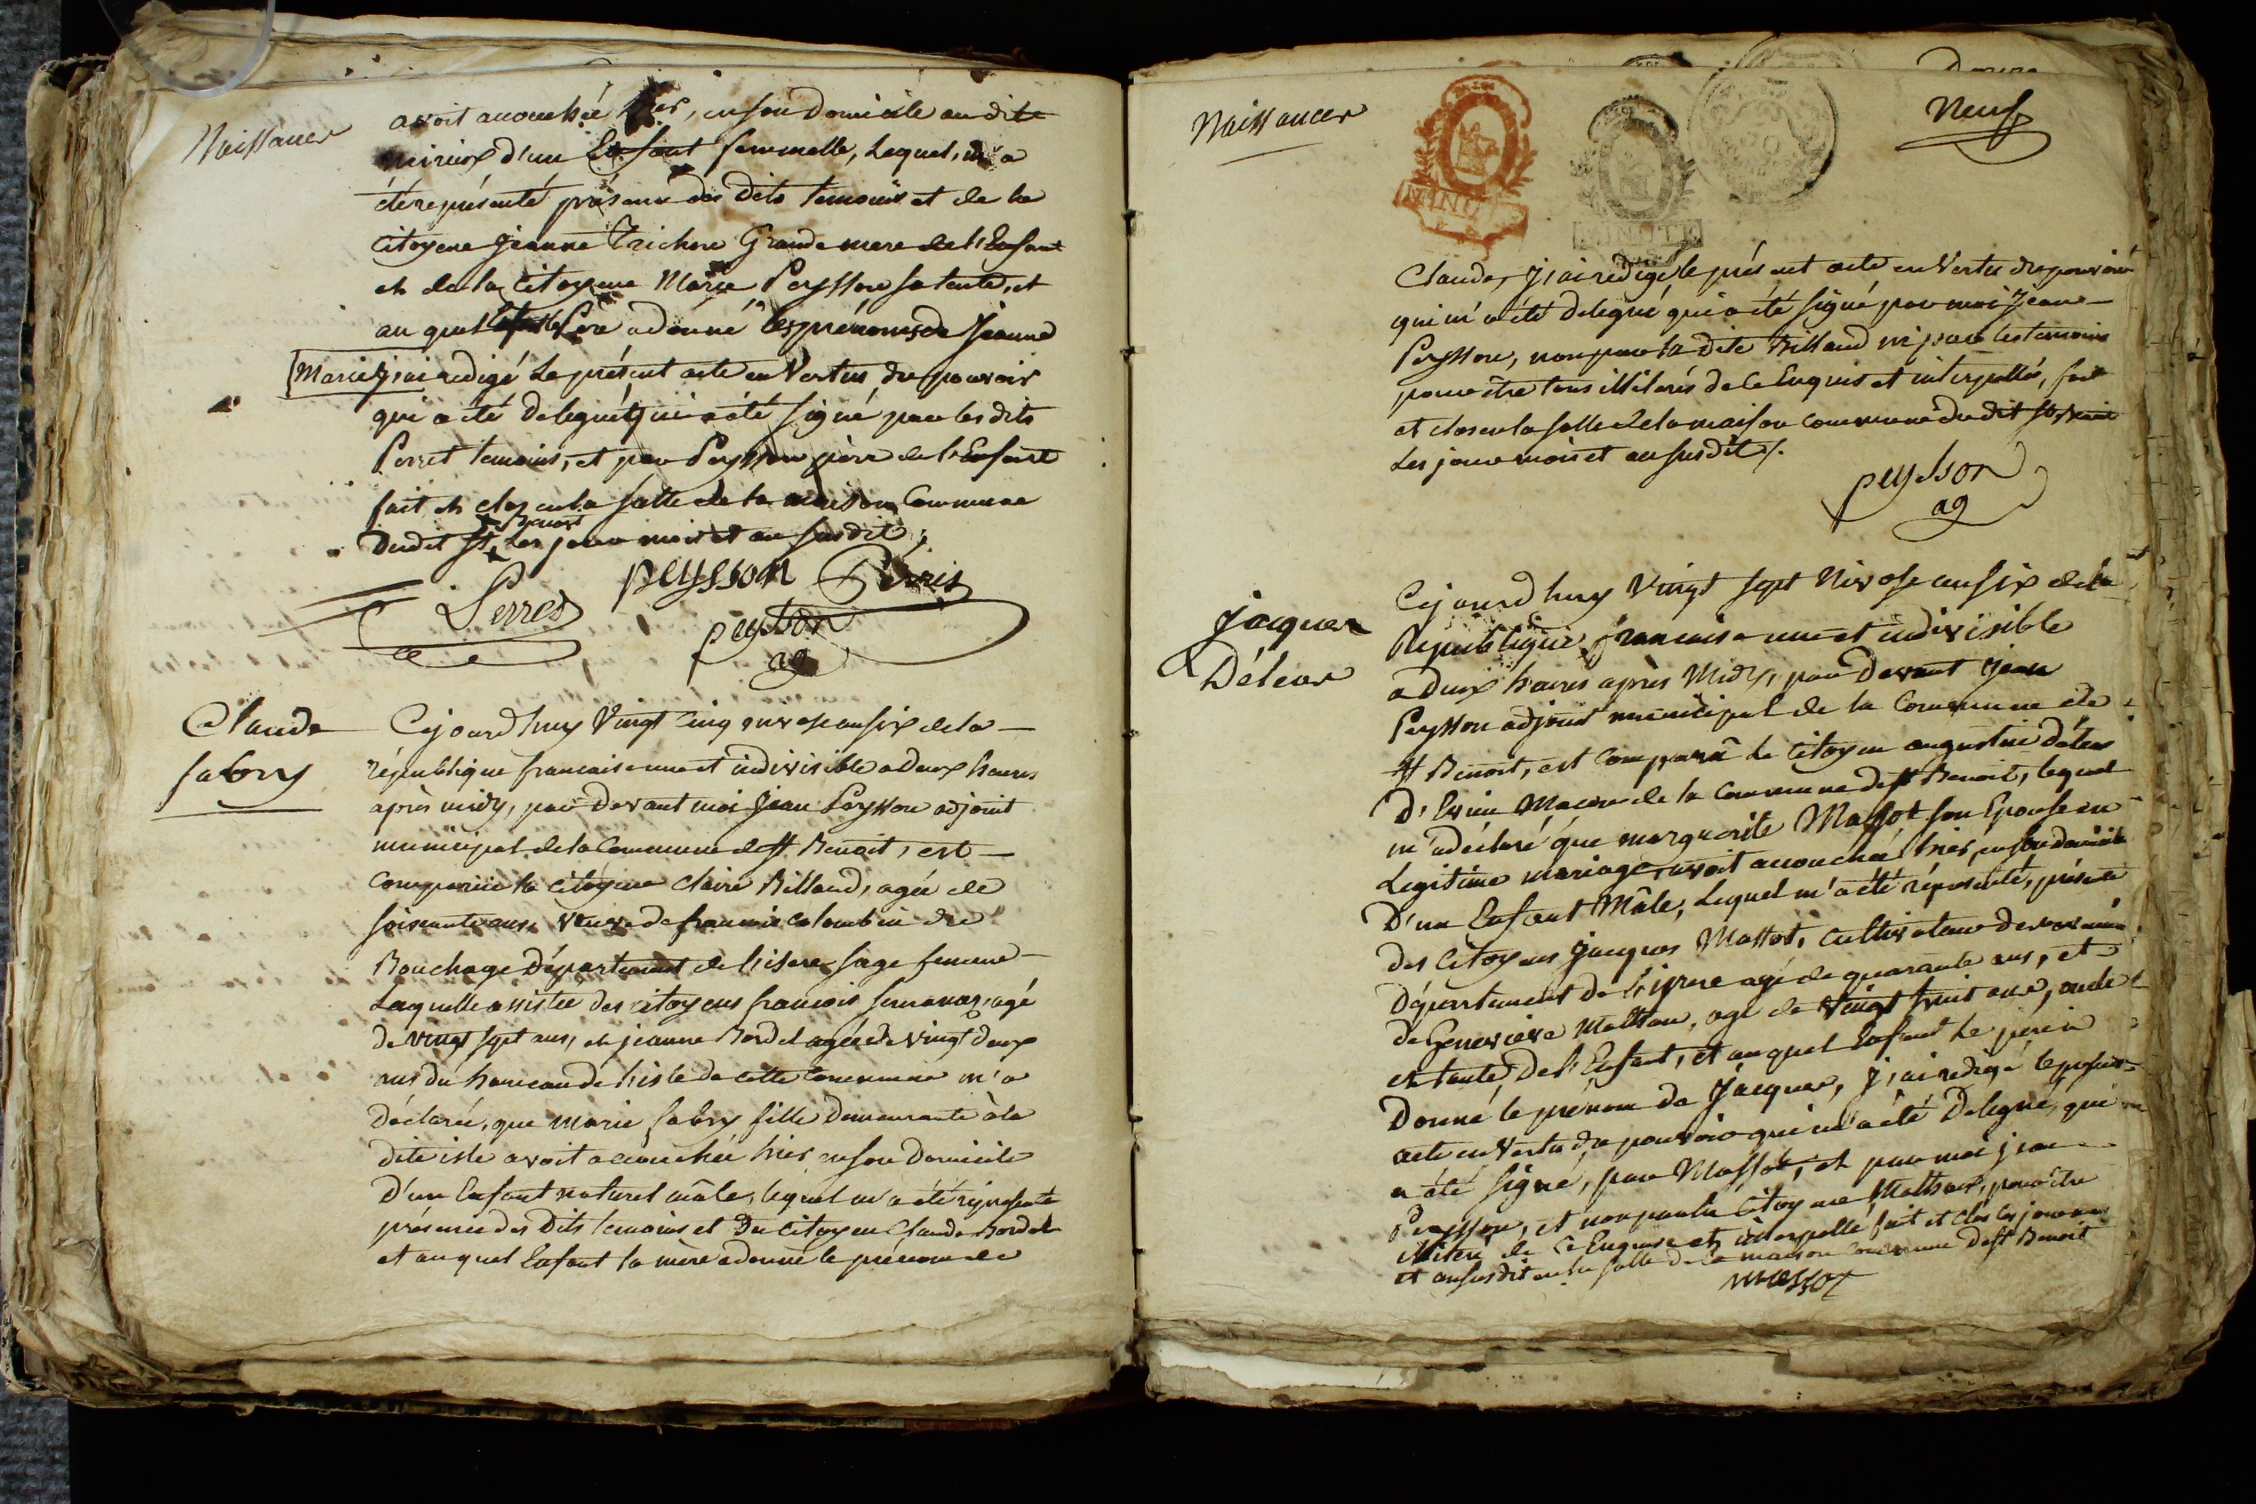 Naissances
avoit accouchée hier, en son Domicile au dit
d'un Enfant femmelle, Lequel m'a
été representé présence des dits temoins et de la
Citoyene Jeanne Trichon Grande mere de l'Enfant
et de la Citoyene Marie Peysson sa tante, et
au quel le Pere a donné les prénoms de Jeanne
Marie, j'ai redigé Le présent acte en Vertus du pouvoir
qui a été delegué qui a été signé par les dits
Perret temoins, et par Peysson père de l'Enfant
fait et clos en la salle de la maison Commune
Benoit
Dudit St, Les jour mois et an susdit ;
Perret peysson
peysson
ag
Claude
fabry
Cejourd huy Vingt Cinq nivose an six de la
république francaise une et indivisible a Deux heures
après midy, par Devant moi Jean Peysson adjoint
municipal de la Commune de St Benoit, est
comparue la citoyene Claire Billaud, agée de
soixante ans, Veuve de francois Colombin du
Bouchage Département de l'isere sage femme
Laquelle assistée des citoyens francois agé
de vingt sept ans, et jeanne Bordel agée de vingt deux
ans du hameau de l'isle de cette Commune m'a
Déclarée, que marie fabry fille Demeurante à la
dite isle avoit accouchée hier en son Domicile
D'un Enfant naturel mâle, lequel m'a été représenté
présence des Dits temoins et Du Citoyen Claude Bordel
et au quel Enfant la mère a donné le prénom de
Naissances
Neuf
MINUTE
MINUTE
Claude, j'ai redigé le présent acte en Vertu du pouvoir
qui m'a été delegué qui a été signé par moi Jean
Peysson, non par la dite Billaud ni par les temoins
pour être tous illiterés de Ce Enquis et interpellé, fait
et clos en la salle de la maison commune du dit St Benoit
Les jour mois et an susdit ./.
peysson
ag
Jacques
Déléas
Cejourd huy Vingt sept Nivose an six de la
Republique francaise une et indivisible
a Deux heures après Midy, par Devant Jean
Peysson adjoint municipal de la Commune de
St Benoit, est Comparu le Citoyen augustin Déléas
D' Macon de la Commune de St Benoit, lequel
m'a déclaré que marguerite Massot son Epouse en
Legitime mariage avoit accouchée hier, en son domicile
D'un Enfant Mâle, Lequel m'a été répresenté, présence
des Citoyens Jacques Massot, Cultivateur de
Département de l'isere agé de quarante ans, et
de Genevieve Mathan, agé de vingt huit ans, oncle
et tante De l'Enfant, et au quel Enfant le père a
Donné le prénom de Jacques, j'ai redigé le présent
acte en Vertu du pouvoir qui m'a été Delegué, qui
a été signé, par Massot, et par moi jean
Peysson, et non par la Citoyene Mathan, pour être
illiteré de Ce Enquise et interpellé fait et clos les jour mois
et an susdit en la salle de la maison commune de St Benoit
massot